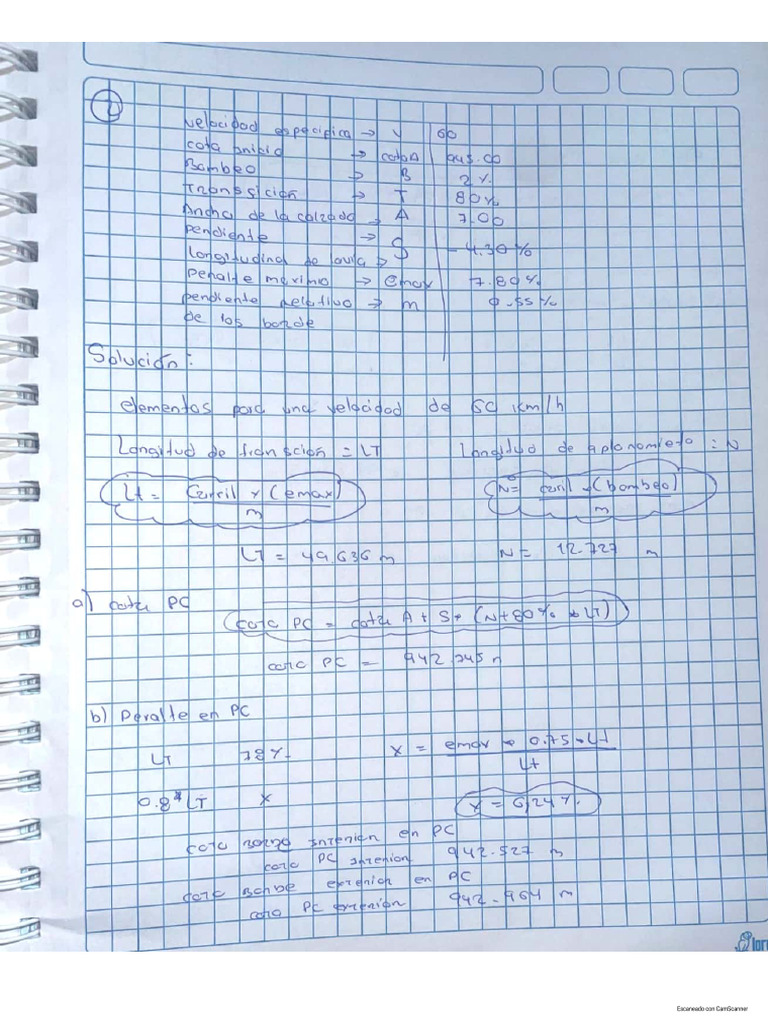 2
velocidad especifica → V 60
cota inicio → cotaA 945.00
Bombeo → B 2%
Transsición → T 80%
Ancho de la calzado → A 7.00
pendiente → S - 4.30%
longitudina de lavia →
peralte maximo → emax 7.80%
pendiente relativo → m 0.55%
de los borde
Solución:
elementos para una velocidad de 60 km/h
Longitud de transción = LT Longitud de aplonomieto = N
Lt = Carril * (emax) / m N = Caril * (bombeo) / m
LT = 49.636 m N = 12.727 m
a) cota PC
cota PC = cota A + S * (N+80% * LT)
cota PC = 942.745 m
b) Peralte en PC
LT 78% X = emax * 0.75 * Lt / Lt
0.8*LT X X = 6,24%
cota Borde interior en PC
cota PC interior 942.527 m
cota Borde exterior en PC
cota PC exterior 942.964 m
Escaneado con CamScanner